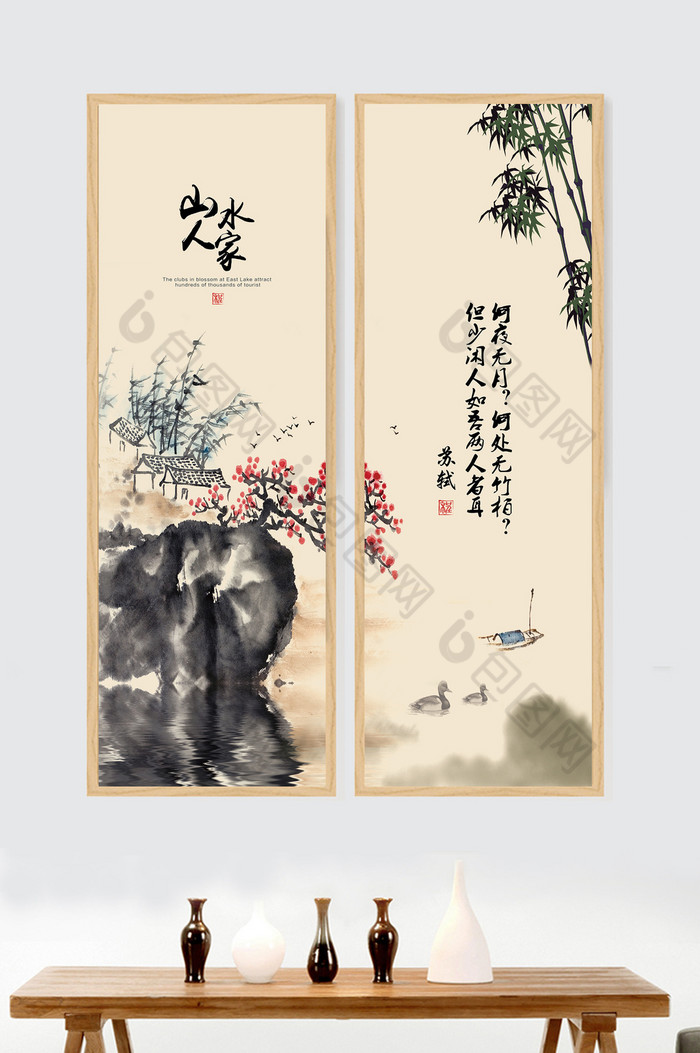 山水
人家
The clubs in blossom at East Lake attract
hundreds of thousands of tourist
何夜无月？何处无竹柏？
但少闲人如吾两人者耳
苏轼
包图网
包图网
包图网
包图网
包图网
包图网